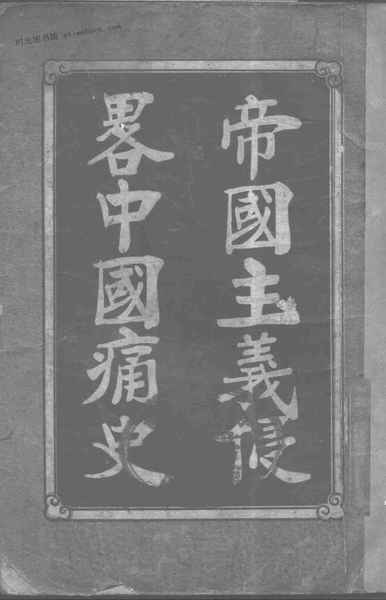 帝國主義侵
畧中國痛史